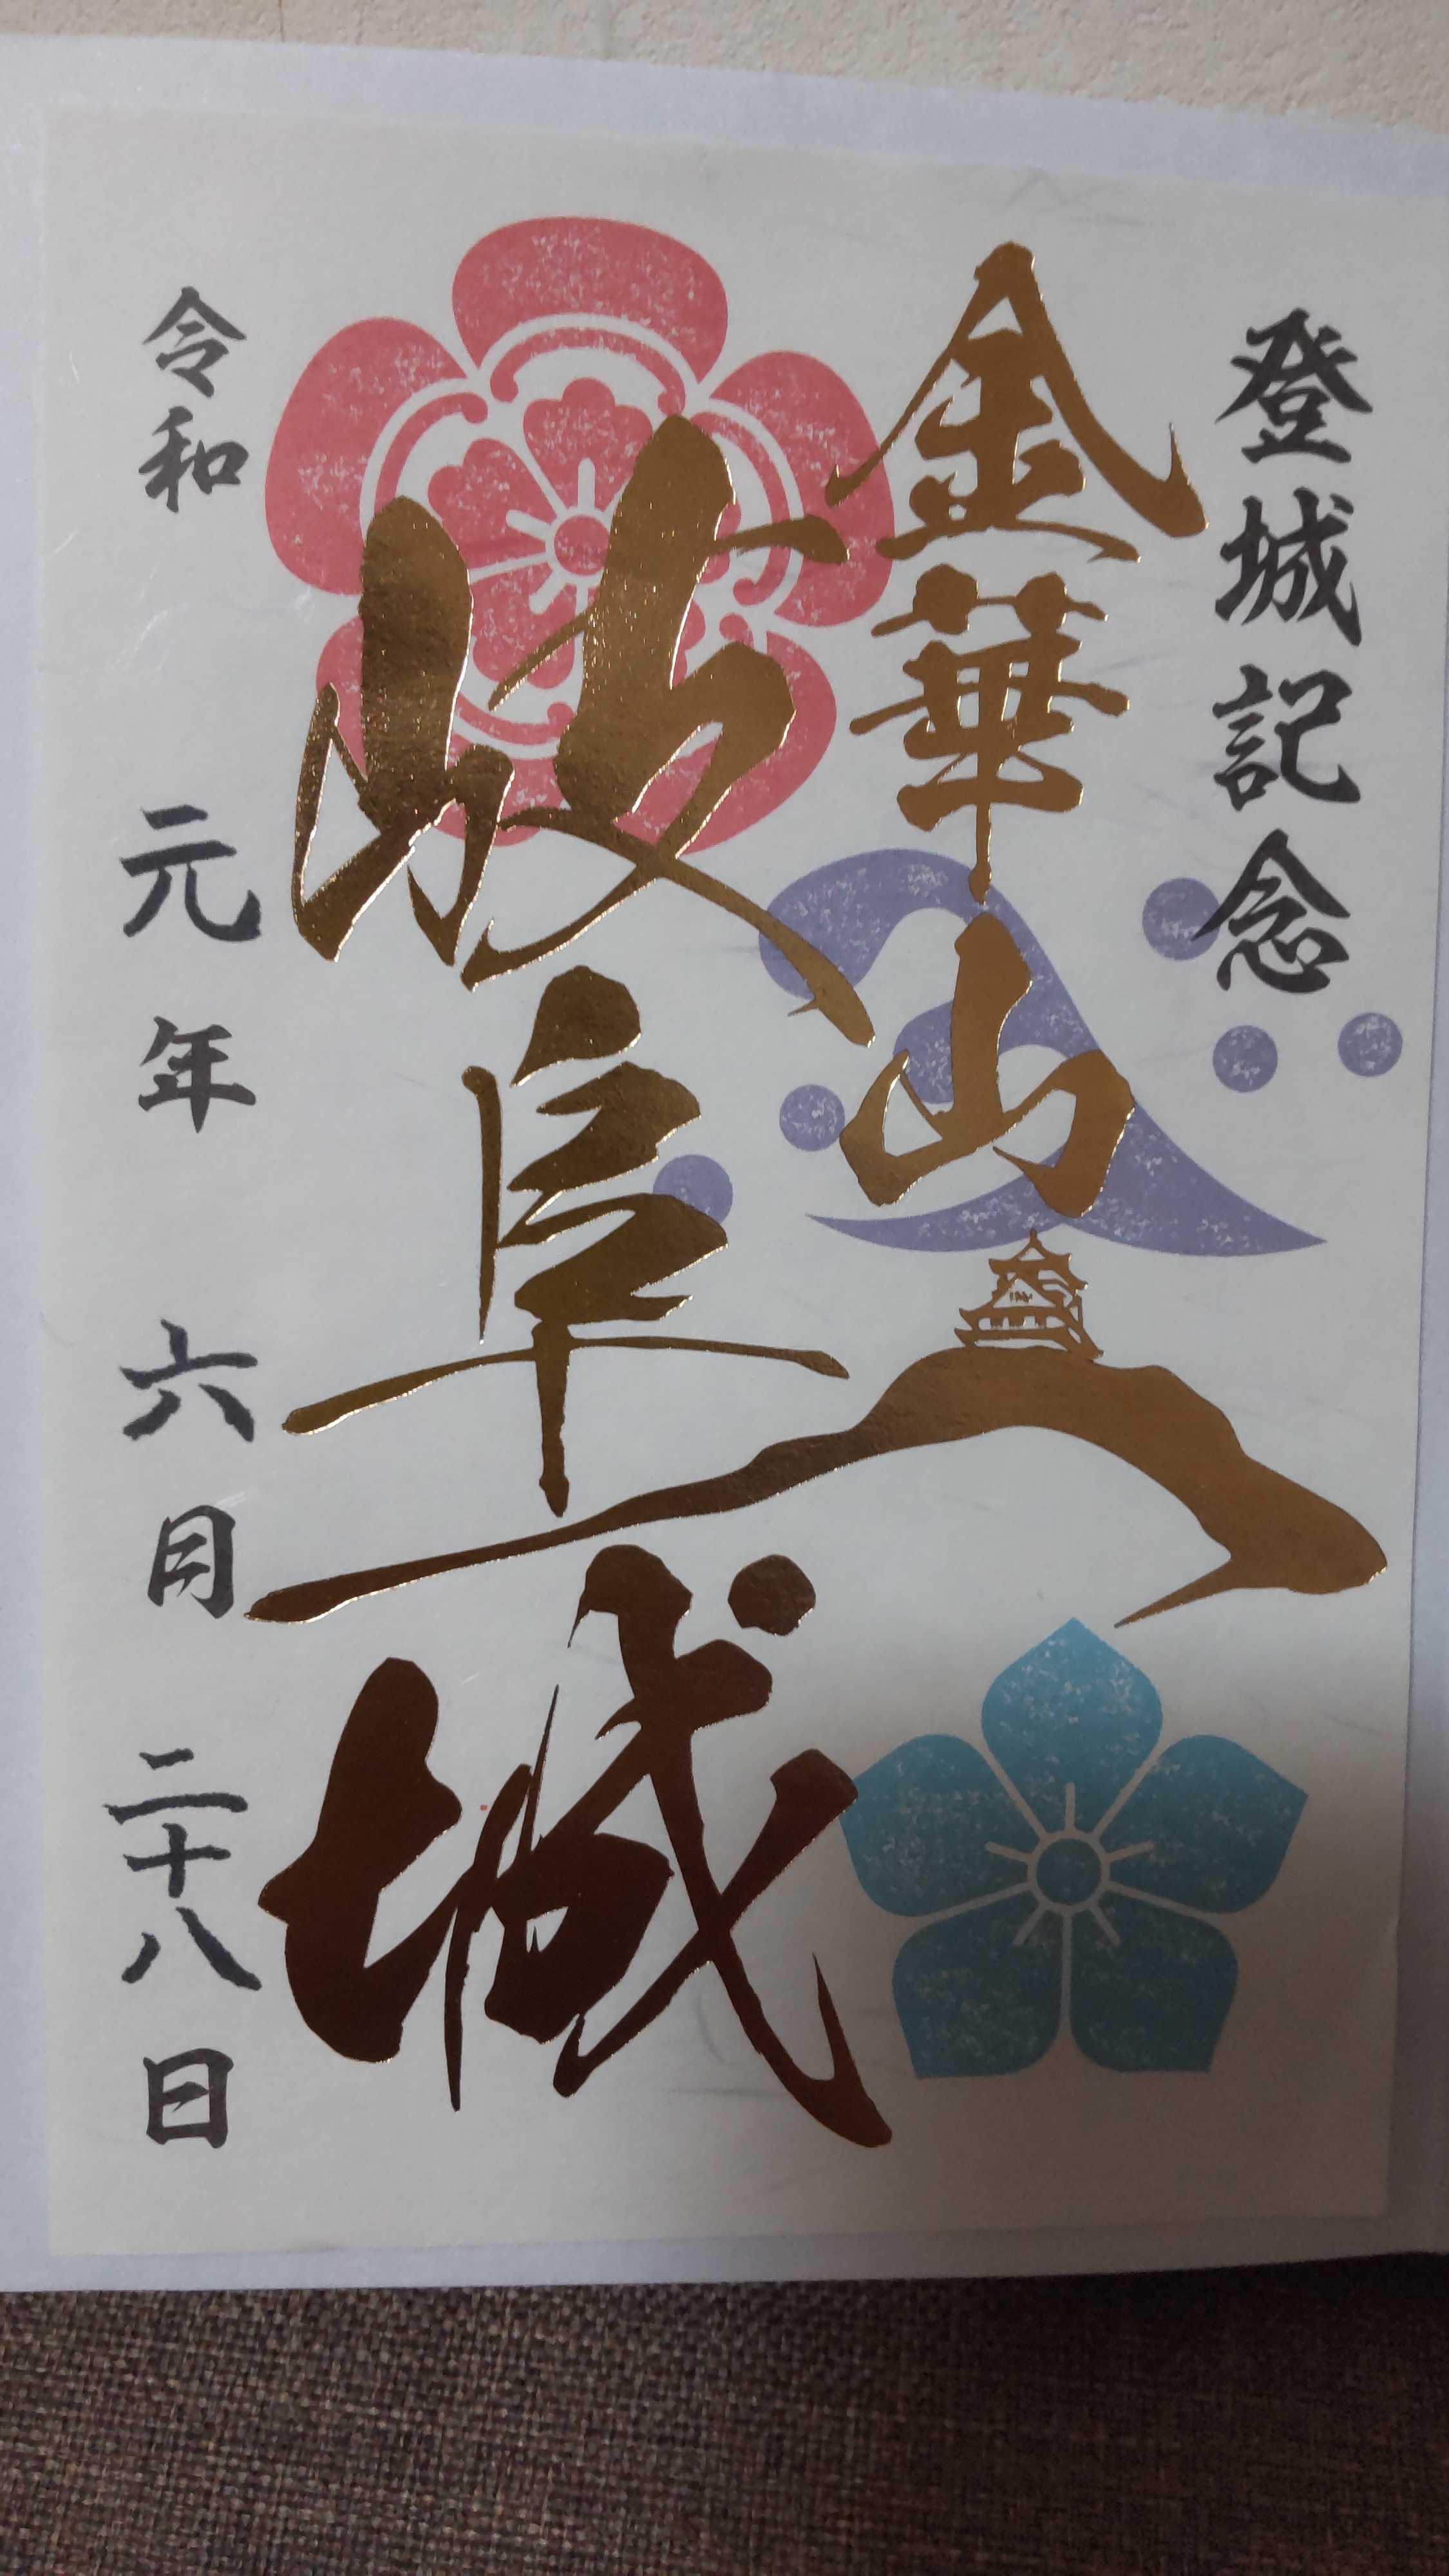 登城記念
金華山
岐阜城
令和元年六月二十八日